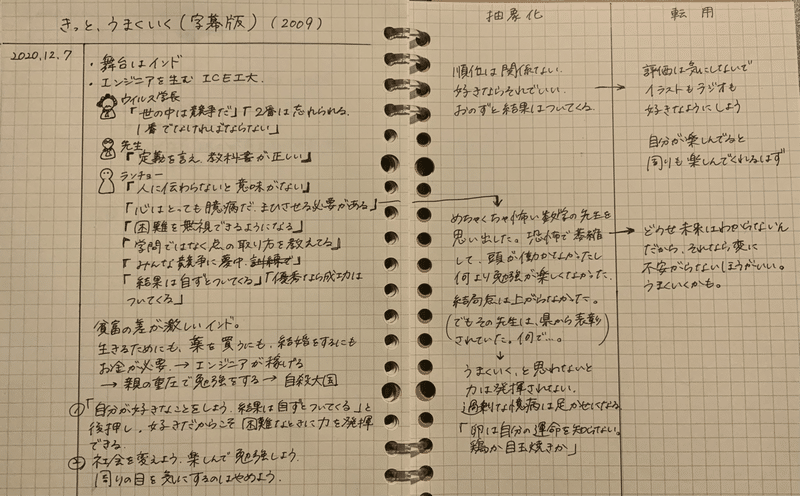 きっと、うまくいく(字幕版)(2009)
2020.12.7
・舞台はインド
・エンジニアを生む ICE工大.
ウイルス学長
「世の中は競争だ」「2番は忘れられる.
1番でなければならない」
先生
「定義を言え、教科書が正しい」
ランチョー
「人に伝わらないと意味がない」
「心はとっても臆病だ.まひさせる必要がある」
「困難を無視できるようになる」
「学問ではなく点の取り方を教えてる」
「みんな競争に夢中.
「結果は自ずとついてくる」「優秀なら成功は
ついてくる」
貧富の差が激しいインド。
生きるためにも、薬を買うにも、結婚をするにも
お金が必要.→エンジニアが稼げる
→ 親の重圧で勉強をする → 自殺大国
①「自分が好きなことをしよう.結果は自ずとついてくる」と
後押し.好きだからこそ「困難なときに力を発揮
できる.
② 社会を変えよう.楽しんで勉強しよう.
周りの目を気にするのはやめよう.
抽象化
順位は関係ない.
好きならそれでいい.
おのずと結果はついてくる.
めちゃくちゃ怖い数学の先生を
思い出した。恐怖で萎縮
して、頭が働かなかったし
何より勉強が楽しくなかった.
結局点は上がらなかった。
(でもその先生は、県から表彰
されていた。何で…。)
↓
うまくいく、と思わないと
力は発揮されない.
過剰な臆病は足かせになる.
「卵は自分の運命を知らない。
鶏か目玉焼きか」
転用
→ 評価は気にしないで
イラストもラジオも
好きなようにしよう
自分が楽しんでると
周りも楽しんでくれるはず
→ どうせ未来はわからないん
だから、それなら変に
不安がらないほうがいい。
うまくいくかも。